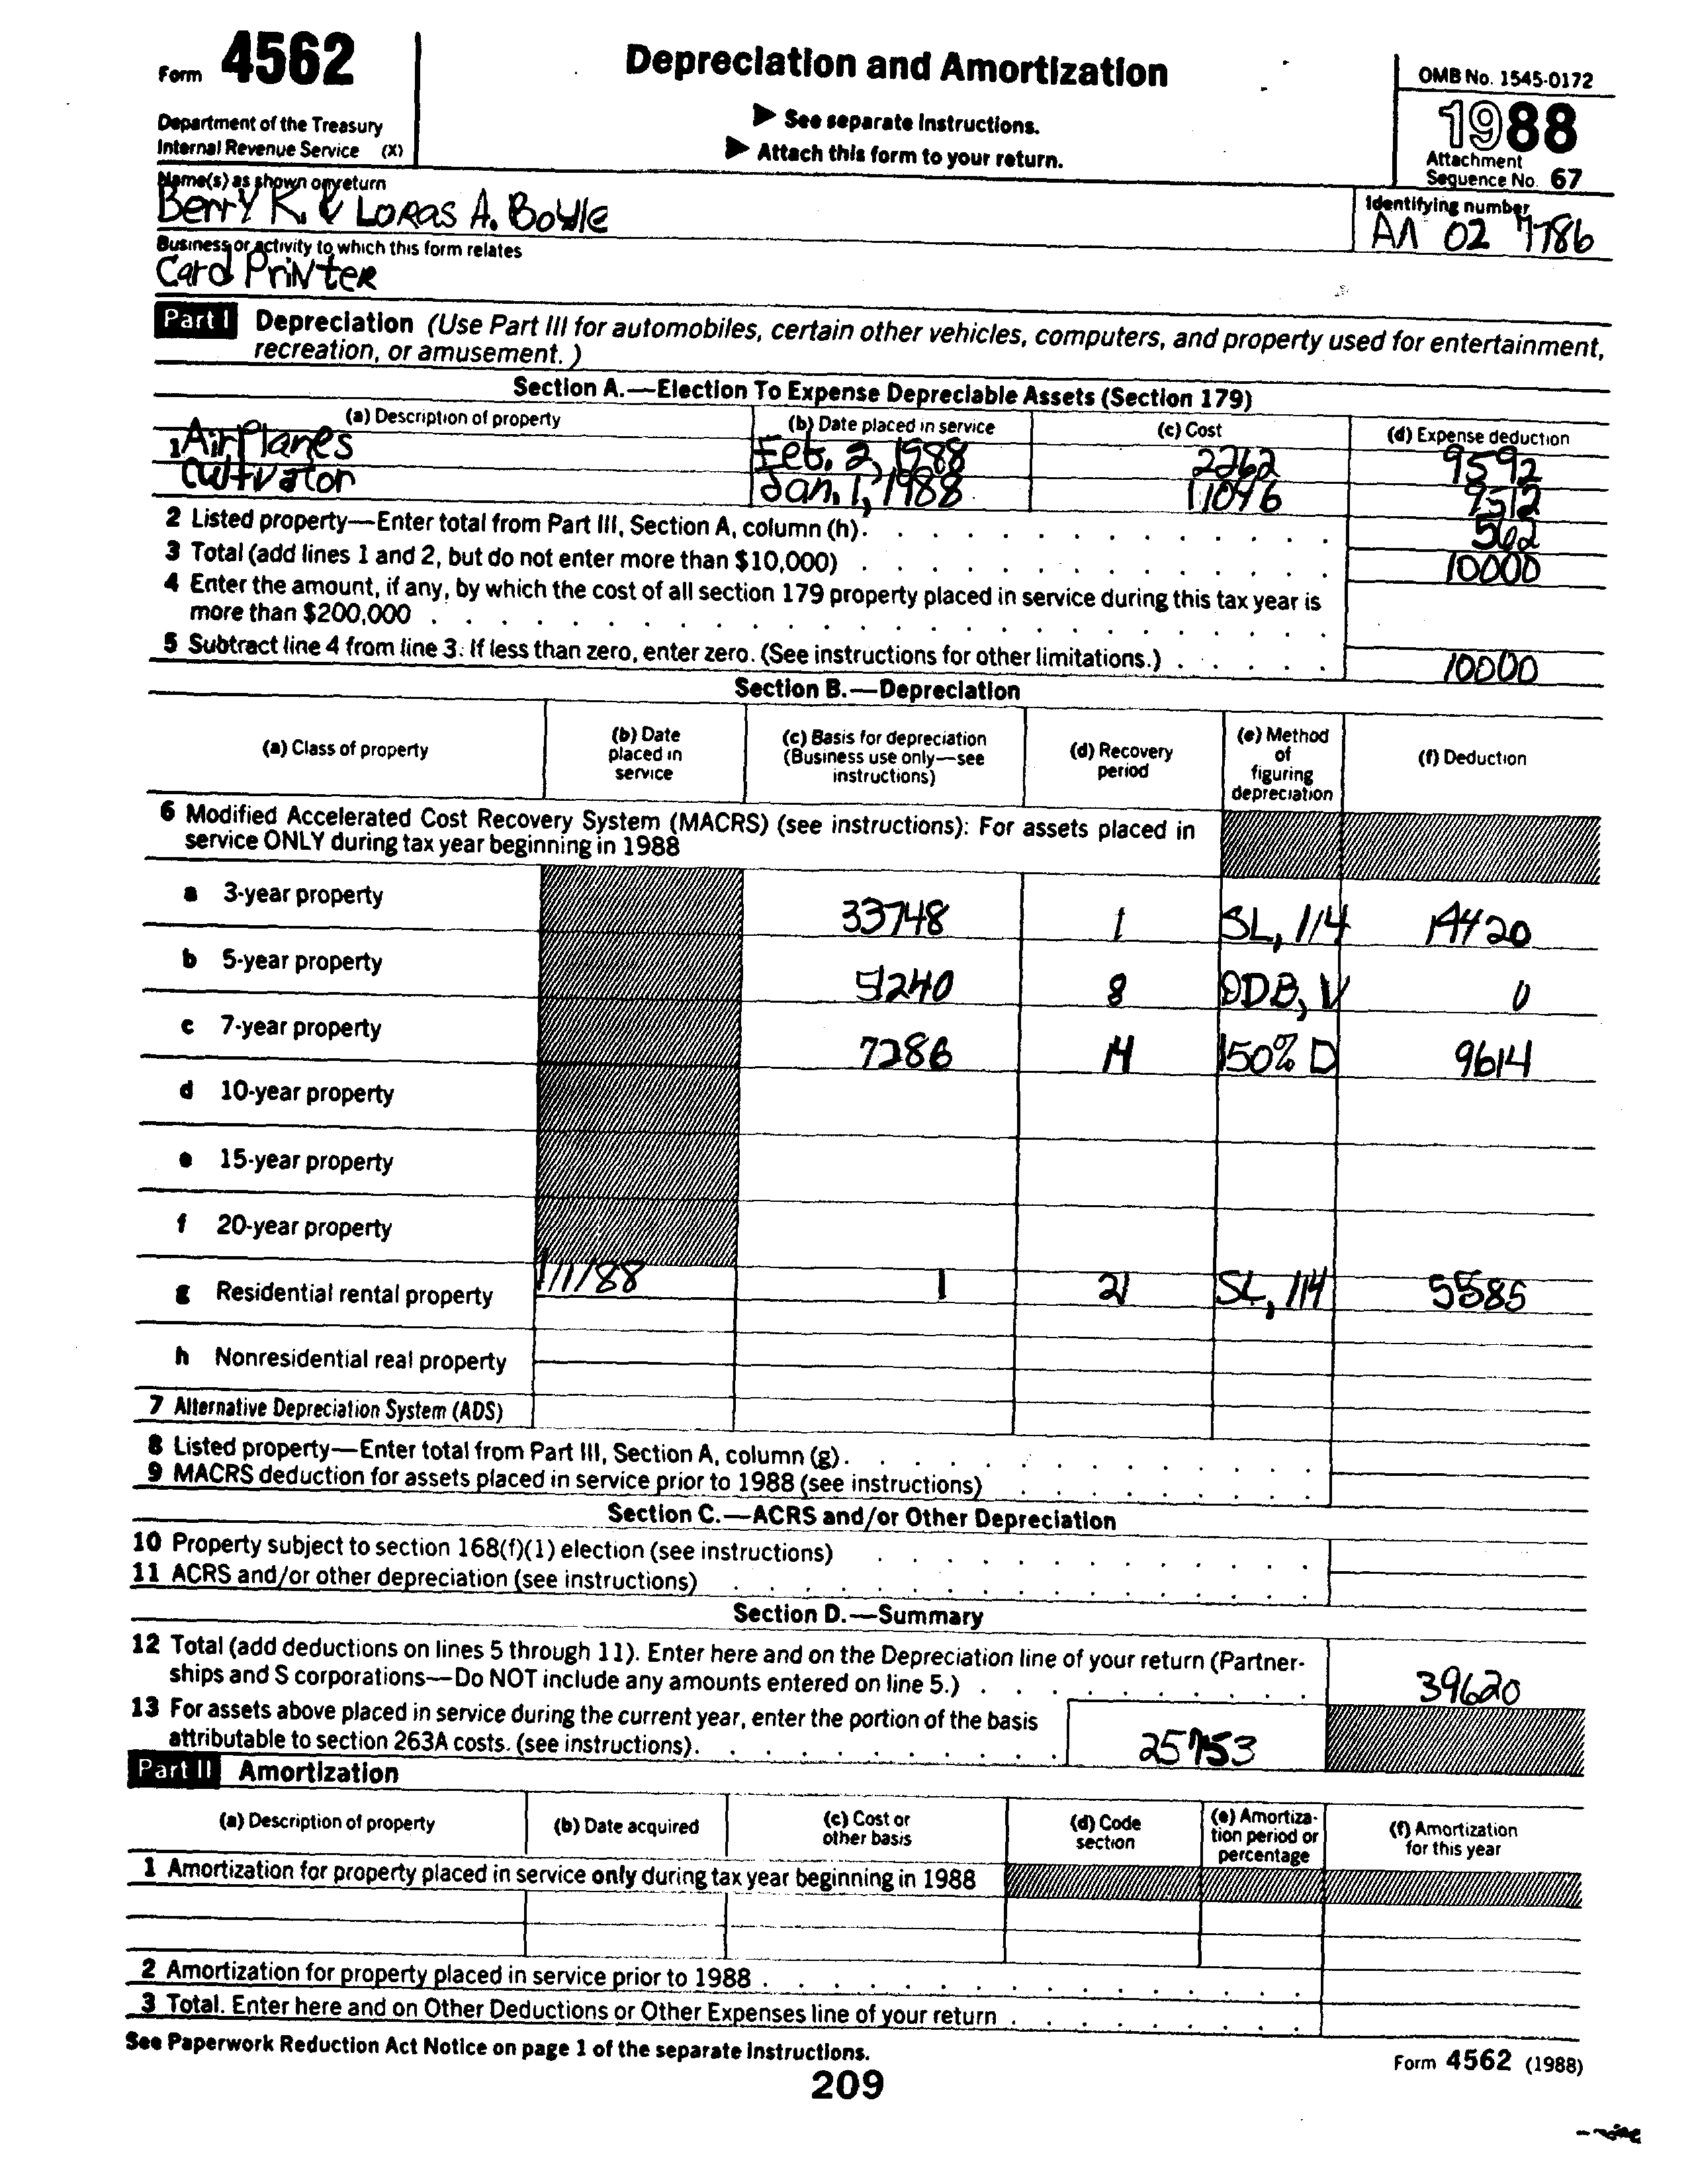 Form 4562
Depreciation and Amortization
OMB No. 1545-0172
Department of the Treasury
Internal Revenue Service (X)
► See separate Instructions.
► Attach this form to your return.
1988
Attachment
Sequence No. 67
Name(s) as shown on return
Berry K. & Loras A. Boyle
Identifying number
02 7786
Business or activity to which this form relates
Card Printer
Part I Depreciation (Use Part III for automobiles, certain other vehicles, computers, and property used for entertainment,
recreation, or amusement.)
Section A.—Election To Expense Depreciable Assets (Section 179)
(a) Description of property (b) Date placed in service (c) Cost (d) Expense deduction
1 Airplanes Feb. 2, 1988 2262 9592
Cultivator Jan. 1, 1988 11046 9512
2 Listed property—Enter total from Part III, Section A, column (h). 562
3 Total (add lines 1 and 2, but do not enter more than $10,000) 10000
4 Enter the amount, if any, by which the cost of all section 179 property placed in service during this tax year is
more than $200,000
5 Subtract line 4 from line 3. If less than zero, enter zero. (See instructions for other limitations.) 10000
Section B.—Depreciation
(a) Class of property (b) Date placed in service (c) Basis for depreciation (Business use only—see instructions) (d) Recovery period (e) Method of figuring depreciation (f) Deduction
6 Modified Accelerated Cost Recovery System (MACRS) (see instructions): For assets placed in
service ONLY during tax year beginning in 1988
a 3-year property 33748 1 SL, 1/4 14420
b 5-year property 51240 8 DDB, V 0
c 7-year property 7286 14 150% D 9614
d 10-year property
e 15-year property
f 20-year property
g Residential rental property 1/1/88 1 21 SL, 1/4 5585
h Nonresidential real property
7 Alternative Depreciation System (ADS)
8 Listed property—Enter total from Part III, Section A, column (g).
9 MACRS deduction for assets placed in service prior to 1988 (see instructions)
Section C.—ACRS and/or Other Depreciation
10 Property subject to section 168(f)(1) election (see instructions)
11 ACRS and/or other depreciation (see instructions)
Section D.—Summary
12 Total (add deductions on lines 5 through 11). Enter here and on the Depreciation line of your return (Partner-
ships and S corporations—Do NOT include any amounts entered on line 5.) 39620
13 For assets above placed in service during the current year, enter the portion of the basis
attributable to section 263A costs. (see instructions). 25753
Part II Amortization
(a) Description of property (b) Date acquired (c) Cost or other basis (d) Code section (e) Amortiza-tion period or percentage (f) Amortization for this year
1 Amortization for property placed in service only during tax year beginning in 1988
2 Amortization for property placed in service prior to 1988
3 Total. Enter here and on Other Deductions or Other Expenses line of your return
See Paperwork Reduction Act Notice on page 1 of the separate Instructions.
Form 4562 (1988)
209